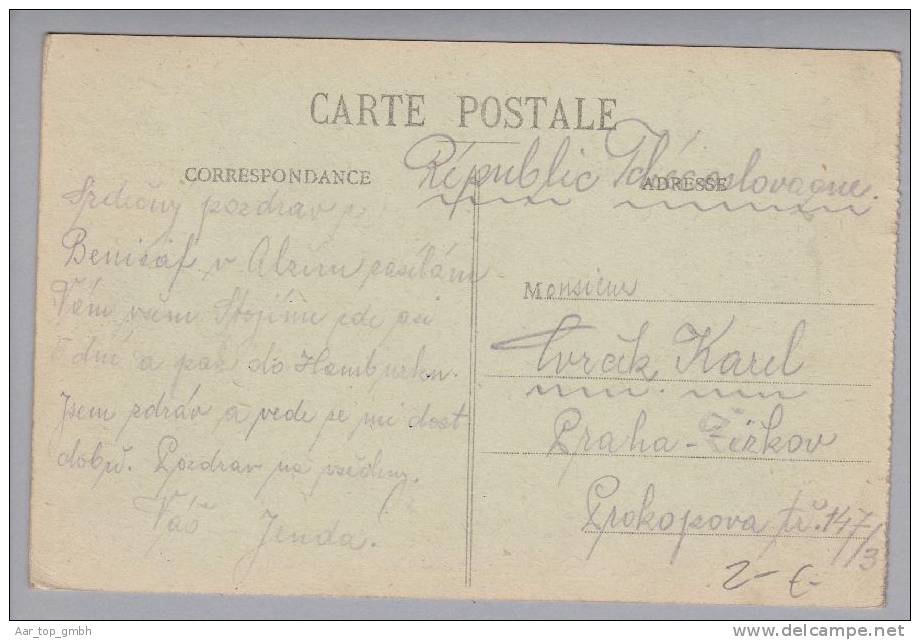 CARTE POSTALE
CORRESPONDANCE
ADRESSE
Républic Tchécoslovaque.
Srdečný pozdrav z
Benisáf v Alžíru zasílám
Vám všem Stojíme zde asi
5 dní a pak do Hamburku.
Jsem zdráv a vede se mi dost
dobře. Pozdrav na všechny.
Váš Jenda.
Monsieur
Karel
Praha - Žižkov
Prokopova tř. 147/3
2 - €-
Aar_top_gmbh
www.delcampe.net